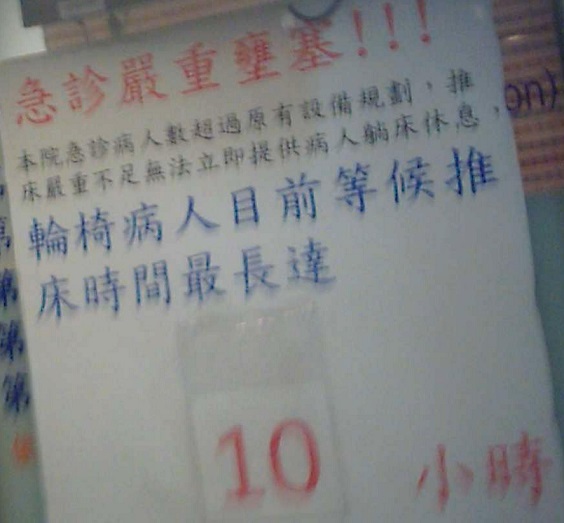 急診嚴重壅塞!!!
本院急診病人數超過原有設備規劃，推
床嚴重不足無法立即提供病人躺床休息，
輪椅病人目前等候推
床時間最長達
10 小時
on)
第
第
第